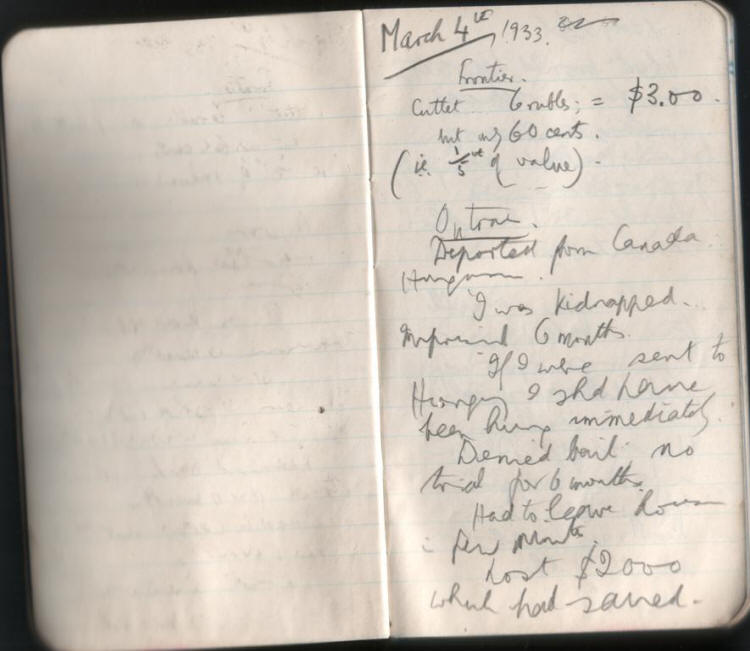 March 4th 1933.
Frontier.
Cutlet 6 roubles; = $3.00.
but only 60 cents.
(i.e. 1/5th of value).
On train.
Deported from Canada
Hungarian.
"I was kidnapped.
Imprisoned 6 months.
"If I were sent to
Hungary I shd have
been hung immediately.
Denied bail; no
trial for 6 months.
Had to leave
few
Lost $2000
which had saved.